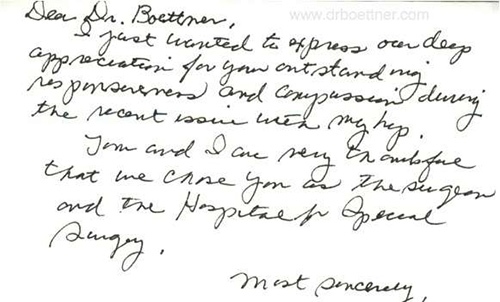 Dear Dr. Boettner,
www.drboettner.com
I just wanted to express our deep
appreciation for your outstanding
responsiveness and compassion during
the recent issue with my hip.
Tom and I are very thankful
that we chose you as the surgeon
and the Hospital for Special
Surgery.
Most sincerely,